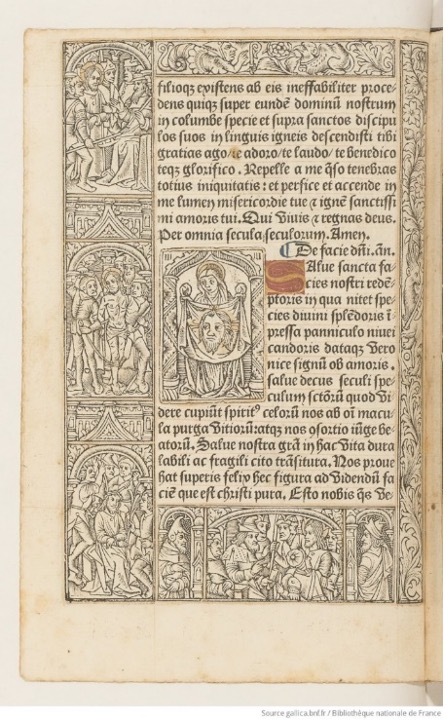 filioqꝫ existens ab eis ineffabiliter proce-
dens quiqꝫ super eundẽ dominũ nostrum
in columbe specie et supra sanctos discipu
los suos in linguis igneis descendisti tibi
gratias ago/te adoro/te laudo/te benedico
teqꝫ glorifico. Repelle a me q̃so tenebras
totius iniquitatis: et perfice et accende in
me lumen misericordie tue ⁊ ignẽ sanctissi
mi amoris tui. Qui viuis ⁊ regnas deus.
Per omnia secula seculorum. Amen.
De facie dñi. añ.
SAlue sancta fa-
cies nostri redẽ-
ptoris in qua nitet spe-
cies diuini splẽdoris ĩ
pressa panniculo niuei
candoris dataqꝫ vero
nice signũ ob amoris.
salue decus seculi spe-
culum sctõrũ quod vi
dere cupiũt spiritꝰ celorũ nos ab oĩ macu
la purga vitiorũ:atqꝫ nos cõsortio iũge be-
atorũ. Salue nostra grã in hac vita dura
labili ac fragili cito trãsitura. Nos proue
hat superis felix hec figura ad videndũ fa
ciẽ que est christi pura. Esto nobis q̃s ve-
Source gallica.bnf.fr / Bibliothèque nationale de France